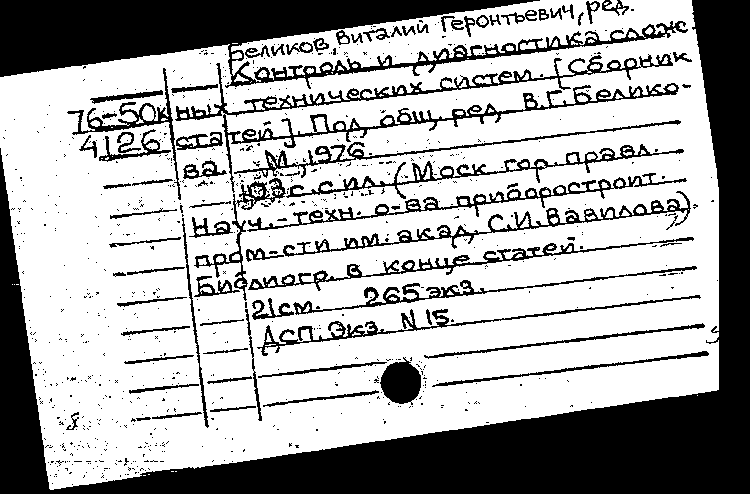 Беликов, Виталий Геронтьевич, ред.
Контроль и диагностика слож-
76-50к ных технических систем. [Сборник
4126 статей]. Под общ. ред. В.Г. Белико-
ва. М., 1976.
193 с. с ил. (Моск. гор. правл.
Науч.-техн. о-ва приборостроит.
пром-сти им. акад. С.И. Вавилова).
Библиогр. в конце статей.
21см. 265 экз.
ДСП. Экз. N 15.